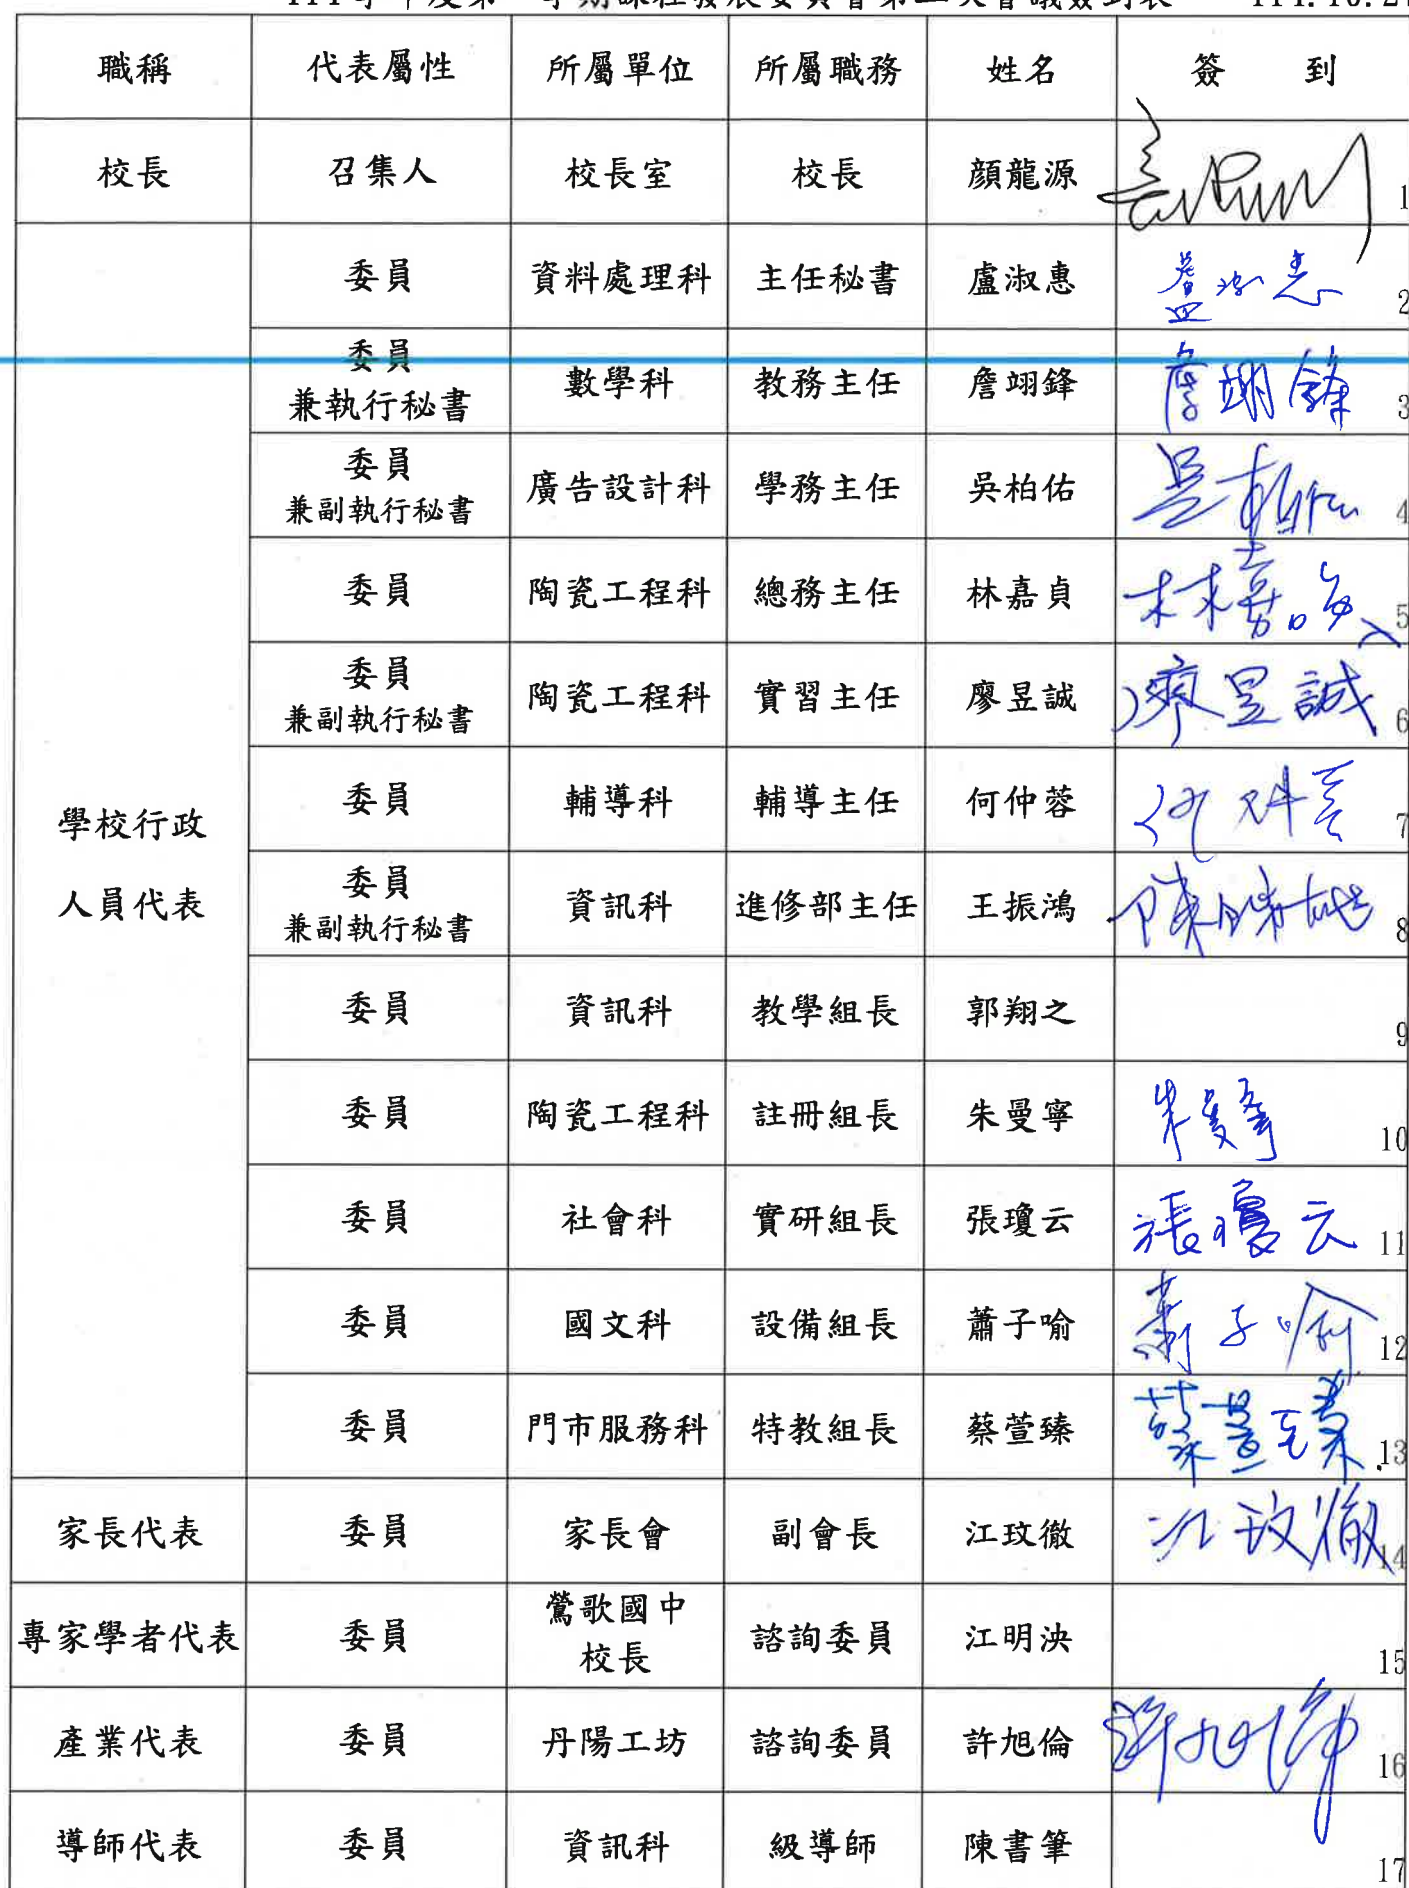 職稱 代表屬性 所屬單位 所屬職務 姓名 簽 到
校長 召集人 校長室 校長 顏龍源 1
學校行政
人員代表
委員 資料處理科 主任秘書 盧淑惠 盧淑惠 2
委員
兼執行秘書 數學科 教務主任 詹翊鋒 詹翊鋒 3
委員
兼副執行秘書 廣告設計科 學務主任 吳柏佑 吳柏佑 4
委員 陶瓷工程科 總務主任 林嘉貞 林嘉貞 5
委員
兼副執行秘書 陶瓷工程科 實習主任 廖昱誠 廖昱誠 6
委員 輔導科 輔導主任 何仲蓉 何仲蓉 7
委員
兼副執行秘書 資訊科 進修部主任 王振鴻 8
委員 資訊科 教學組長 郭翔之 9
委員 陶瓷工程科 註冊組長 朱曼寧 朱曼寧 10
委員 社會科 實研組長 張瓊云 張瓊云 11
委員 國文科 設備組長 蕭子喻 蕭子喻 12
委員 門市服務科 特教組長 蔡萱臻 蔡萱臻 13
家長代表 委員 家長會 副會長 江玟徹 江玟徹 14
專家學者代表 委員 鶯歌國中
校長 諮詢委員 江明泱 15
產業代表 委員 丹陽工坊 諮詢委員 許旭倫 許旭倫 16
導師代表 委員 資訊科 級導師 陳書筆 17